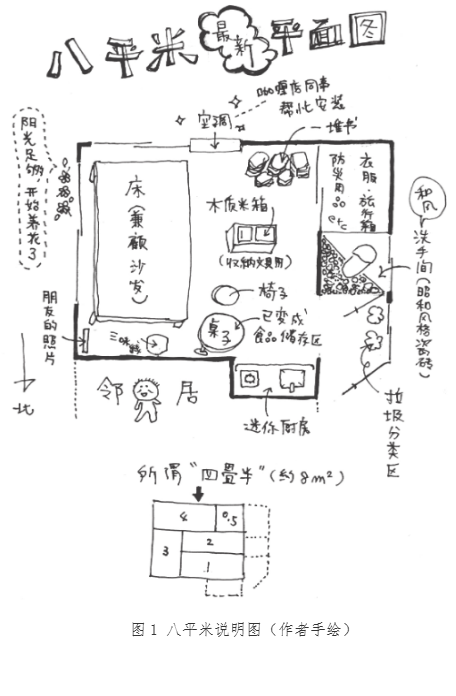 八平米最新平面图
咖喱店同事
帮忙安装
空调
堆书
阳光足够，开始养花了
床（兼顾沙发）
木质米箱
（收纳文具用）
衣服·旅行箱
防災用
etc
和风
洗手间（昭和风格瓷砖）
椅子
桌子
已变成
食品储存区
朋友的照片
三味线
北
邻居
迷你厨房
垃圾分类区
所谓“四畳半”（約8m²）
4
0.5
3
2
1
图1 八平米说明图（作者手绘）